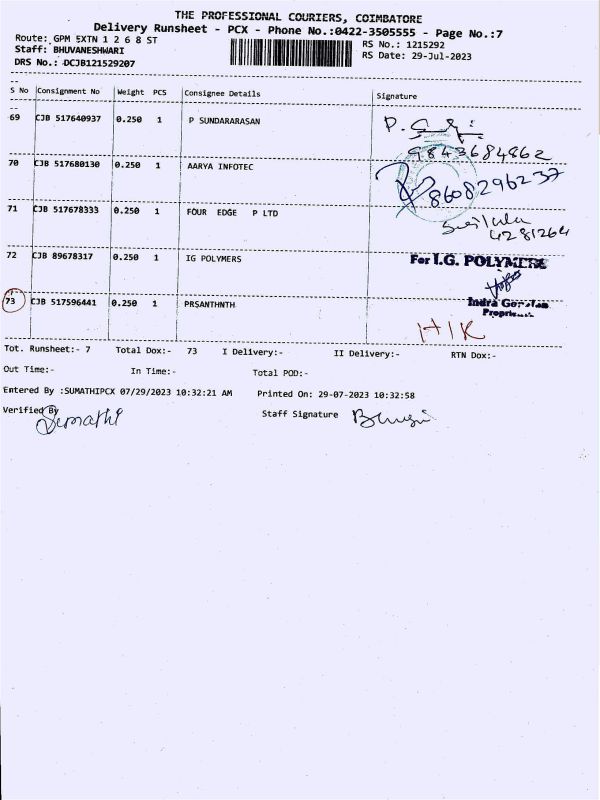 THE PROFESSIONAL COURIERS, COIMBATORE
Delivery Runsheet - PCX - Phone No.:0422-3505555 - Page No.:7
Route: GPM EXTN 1 2 6 8 ST RS No.: 1215292
Staff: BHUVANESHWARI RS Date: 29-Jul-2023
DRS No.: DCJB121529207
S No Consignment No Weight PCS Consignee Details Signature
69 CJB 517640937 0.250 1 P SUNDARARASAN
9843684862
70 CJB 517680130 0.250 1 AARYA INFOTEC 8608296237
71 CJB 517678333 0.250 1 FOUR EDGE P LTD
4281264
72 CJB 89678317 0.250 1 IG POLYMERS For I.G. POLYMERS
73 CJB 517596441 0.250 1 PRSANTHNTH Indra
H/K
Tot. Runsheet:- 7 Total Dox:- 73 I Delivery:- II Delivery:- RTN Dox:-
Out Time:- In Time:- Total POD:-
Entered By :SUMATHIPCX 07/29/2023 10:32:21 AM Printed On: 29-07-2023 10:32:58
Verified By Sumathi Staff Signature